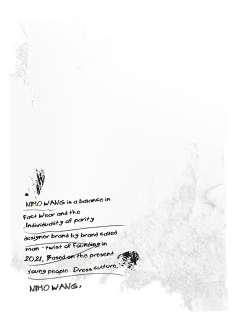 NIMO WANG is a balance in
Fact Wear and the
Individuality of parity
designer brand by brand called
man - twist of Founding in
2021, Based on the present
young people Dress culture,
NIMO WANG,